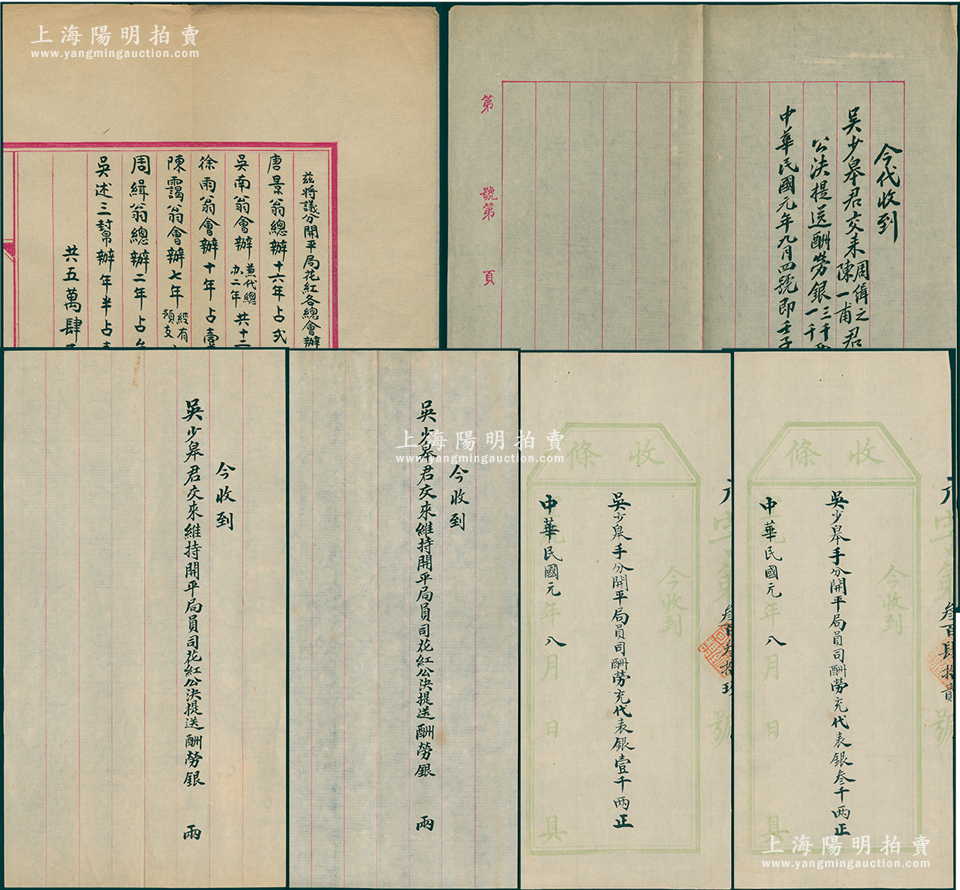 上海陽明拍賣
www.yangmingauction.com
茲將議分開平局花紅各總會辦
唐景翁總辦十六年占弍
吳南翁會辦兼代總办二年共十二
徐雨翁會辦十年占壹
陳靄翁會辦七年經有預支
周緝翁總辦二年占
吳述三幫辦年半占
共五萬肆
今代收到
吳少皋君交来周俌之陳一甫君
公決提送酬勞銀三千两一千
中華民國元年九月四號即壬子
第 號第 頁
今收到
吳少皋君交來維持開平局員司花紅公決提送酬勞銀 兩
上海陽明拍賣
www.yangmingauction.com
今收到
吳少皋君交來維持開平局員司花紅公決提送酬勞銀 兩
收條
元字第叁百叁拾玖號
今收到
吳少皋手分開平局員司酬勞充代表銀壹千兩正
中華民國元年八月 日 具
收條
元字第叁百肆拾貳號
今收到
吳少皋手分開平局員司酬勞充代表銀叁千兩正
中華民國元年八月 日 具
上海陽明拍賣
www.yangmingauction.com